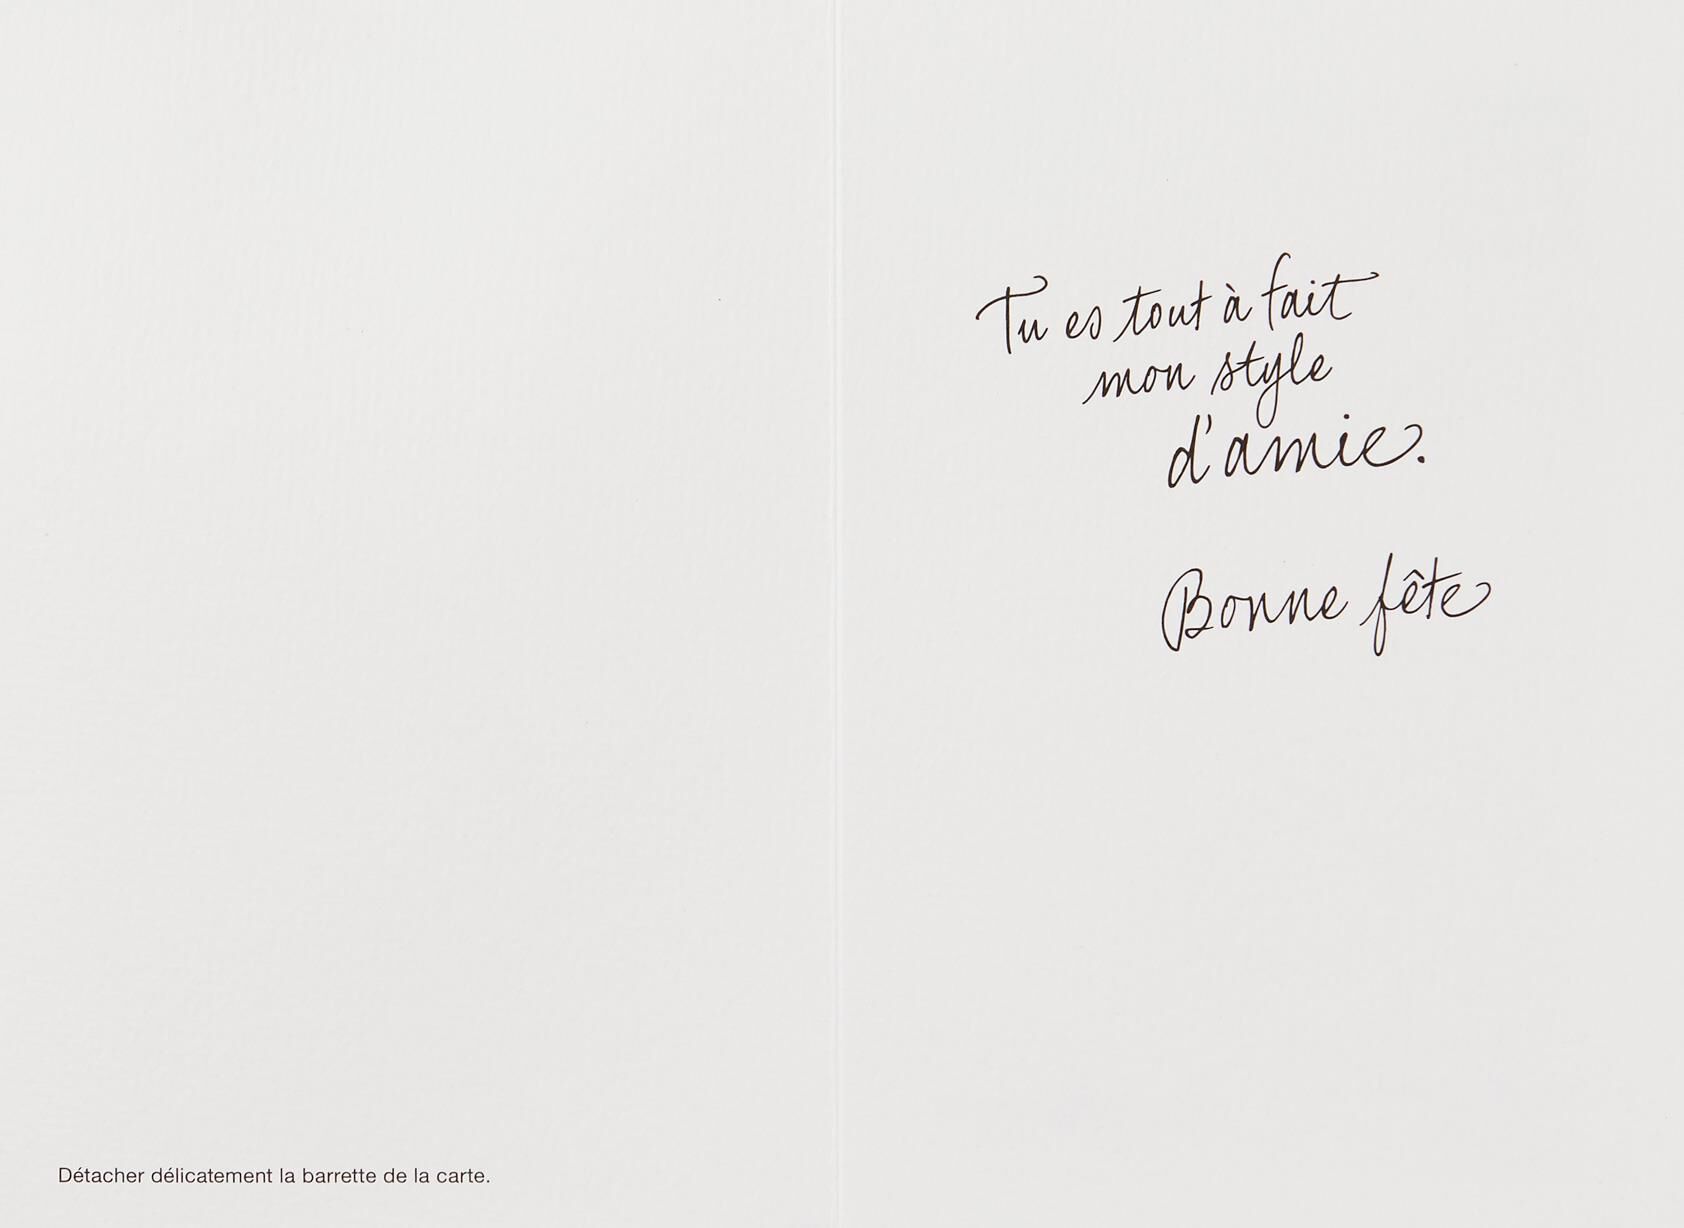 Tu es tout à fait
mon style
d'amie.
Bonne fête
Détacher délicatement la barrette de la carte.